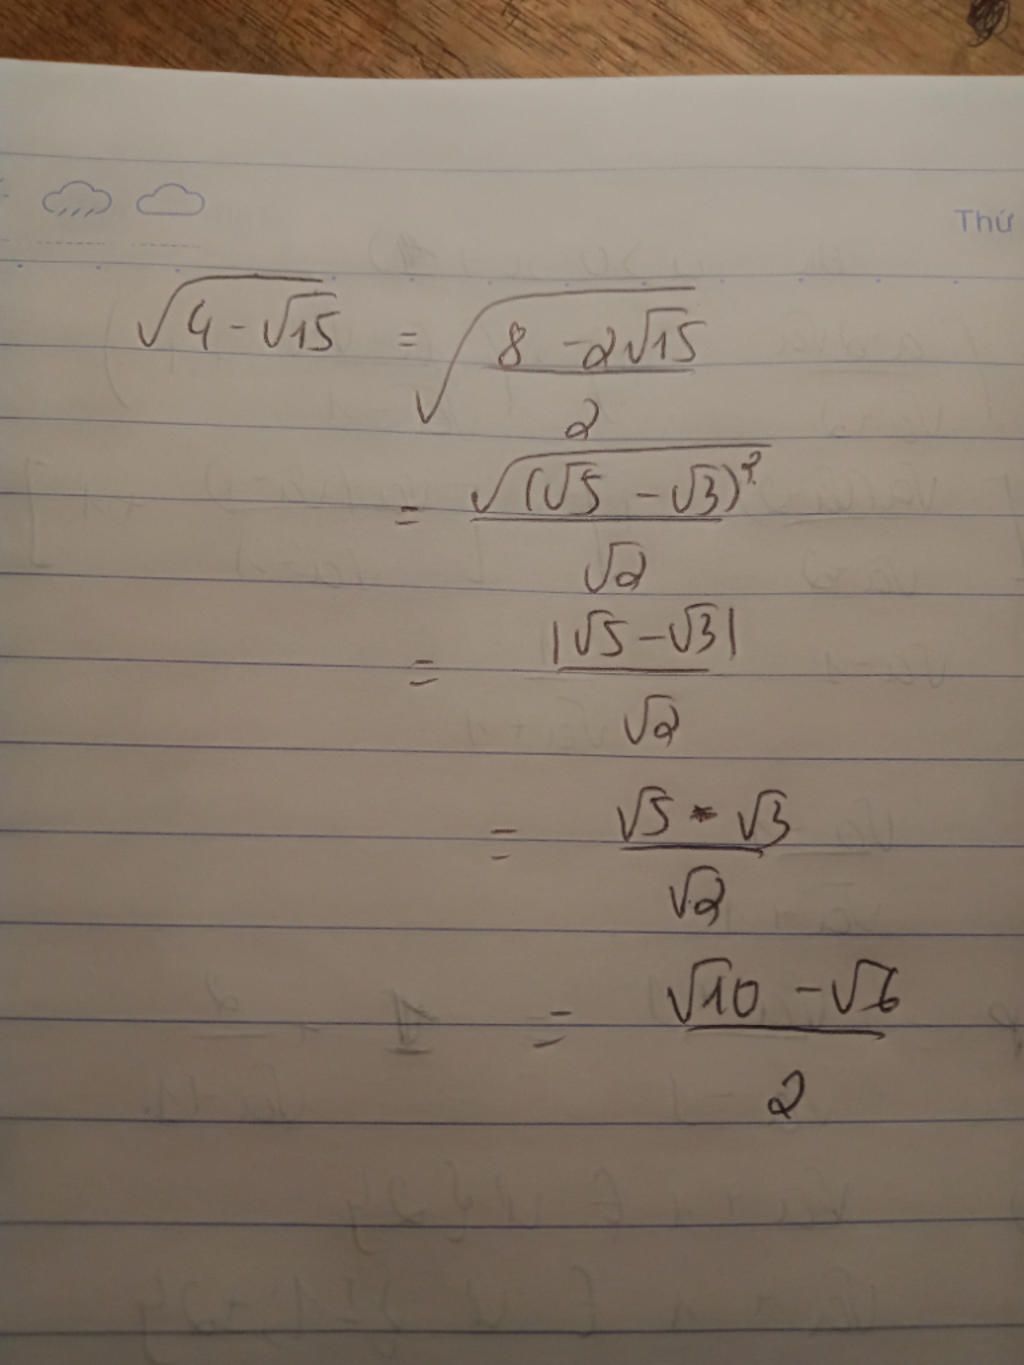 Thứ
√(4 - √15) = √((8 - 2√15)/2)
= √((√5 - √3)²)/√2
= |√5 - √3|/√2
= (√5 - √3)/√2
= (√10 - √6)/2